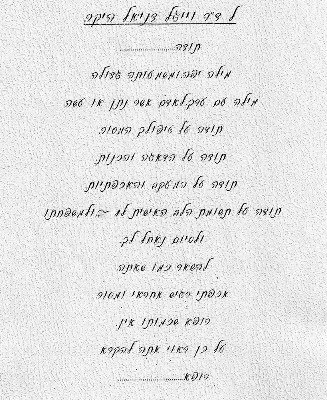 ל ד"ר ווייגל דניאל היקר
תודה...............
מילה יפה ומשמעותה גדולה
מילה עם ערך לאדם אשר נתן או עשה
תודה על טיפולך המסור
תודה על הדאגה והכנות
תודה על המעקב והאכפתיות
תודה על תשומת הלב האישית לו ולמשפחתו
ולסיום נאחל לך
להשאר כמו שאתה
אכפתי רגיש אחראי ומסור
רופא שכמותו אין
על כן ראוי אתה להקרא
רופא...............